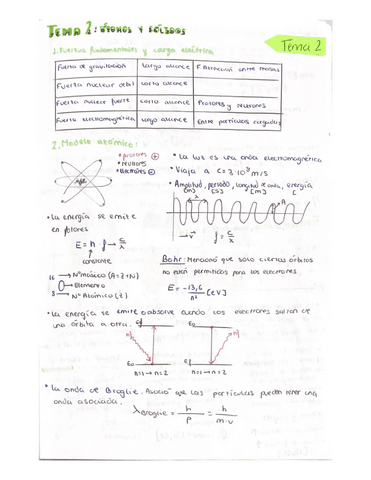 TEMA 2: ÁTOMOS Y SÓLIDOS
Tema 2
1. Fuerzas fundamentales y carga eléctrica
Fuerza de gravitación | Largo alcance | F. Atracción entre masas
Fuerza nuclear débil | corto alcance
Fuerza nuclear fuerte | corto alcance | Protones y neutrones
Fuerza electromagnética | Largo alcance | Entre partículas cargadas
2. Modelo atómico:
• protones ⊕
• neutrones
• electrones ⊖
• La luz es una onda electromagnética
• Viaja a c=3·10⁸ m/s
• Amplitud, periodo, longitud de onda, energía
[m] [s] [m] [J]
λ
A
→ v
f = c/λ
• La energía se emite
en fotones
E = h · f → c/λ
constante
Bohr: Mencionó que solo ciertas órbitas
no están permitidas para los electrones
E = -13,6/n² [eV]
16 → Nº Másico (A=Z+N)
O → Elemento
8 → Nº Atómico (Z)
• La energía se emite o absorve cuando los electrones saltan de
una órbita a otra.
Ef
E₀
n=1 → n=2
E₀
Ef
n=1 → n=2
• La onda de Broglie. Asoció que las partículas pueden tener una
onda asociada.
λBroglie = h/p = h/m·v